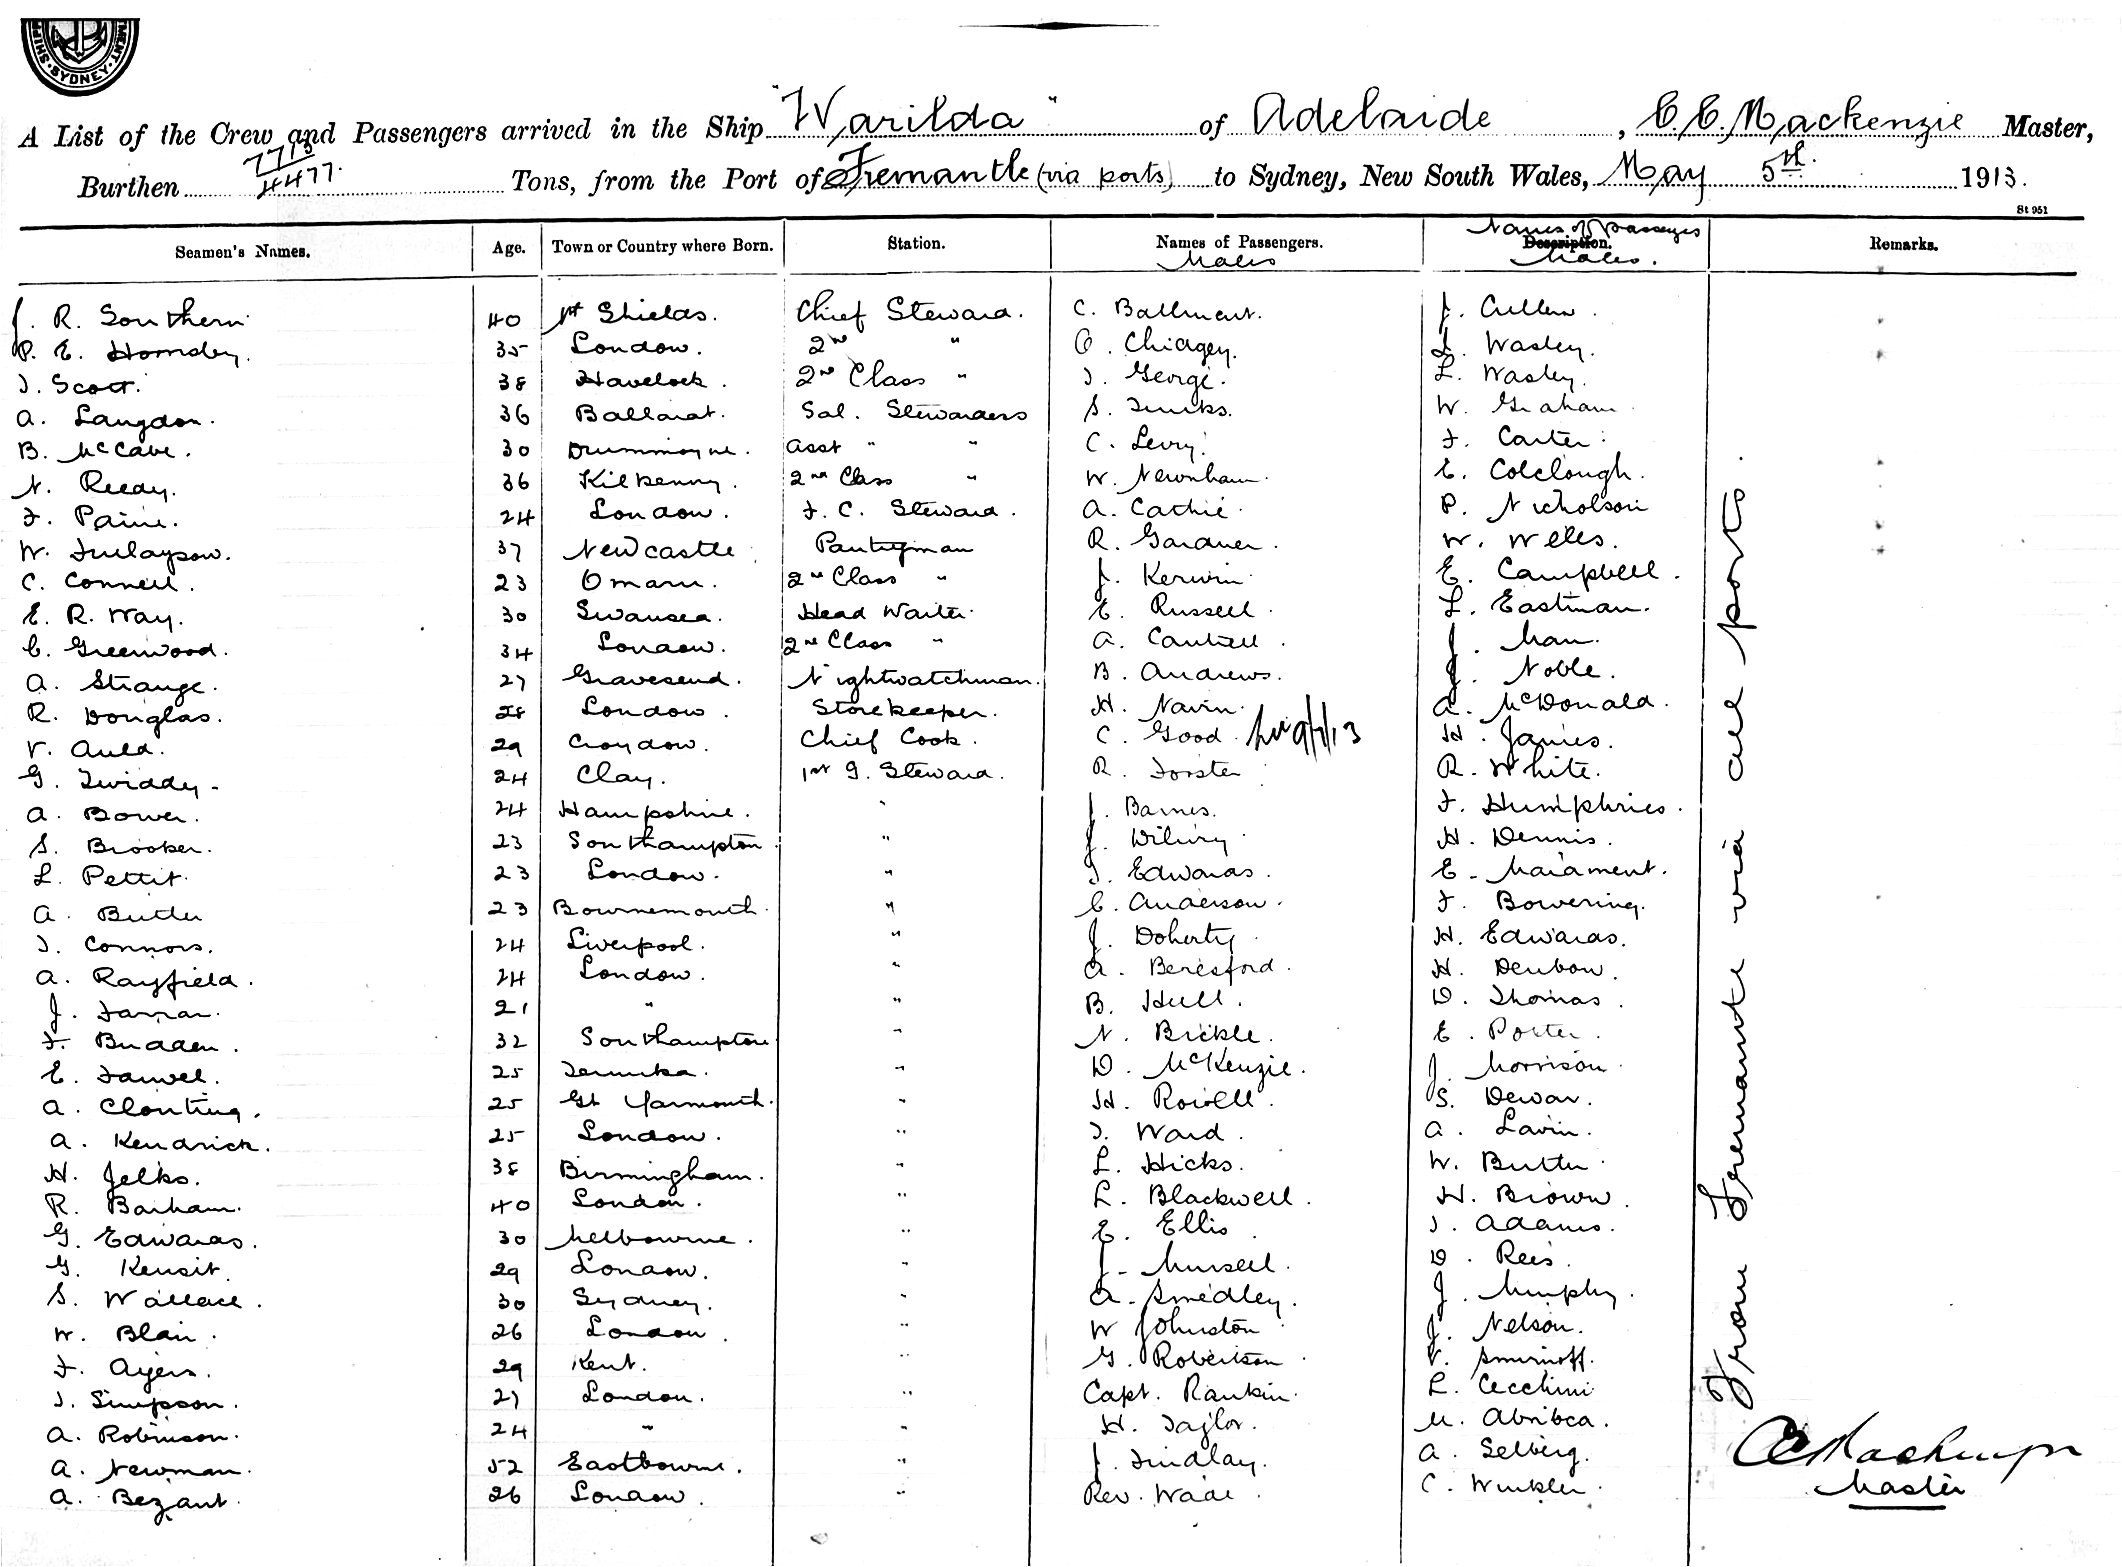 SHIP MENT. SYDNEY.
A List of the Crew and Passengers arrived in the Ship "Warilda" of Adelaide, C.C. Mackenzie Master,
Burthen 7713 / 4477. Tons, from the Port of Fremantle (via ports) to Sydney, New South Wales, May 5th. 1913.
St 951
Seamen's Names. Age. Town or Country where Born. Station. Names of Passengers. Males Description. Names of Passengers Males. Remarks.
J. R. Southern 40 Nth Shields. Chief Steward. C. Ballment. J. Cullen.
P. E. Hornsby. 35 London. 2nd " O. Chidgey. L. Wasley.
J. Scott. 38 Havelock. 2nd Class " J. George. L. Wasley.
A. Langdon. 36 Ballarat. Sal. Stewardess S. Jinks. W. Graham.
B. McCabe. 30 Drummoyne. Asst " " C. Levy. F. Carter.
N. Reedy. 36 Kilkenny. 2nd Class " W. Newnham. E. Colclough.
F. Paine. 24 London. F. C. Steward. A. Cathie. P. Nicholson
W. Finlayson. 37 Newcastle. Pantryman R. Gardner. W. Wells.
C. Connell. 23 Omaru. 2nd Class " J. Kerwin. E. Campbell.
E. R. Way. 30 Swansea. Head Waiter. E. Russell. L. Eastman.
C. Greenwood. 34 London. 2nd Class " A. Cantrell. J. Man.
A. Strange. 27 Gravesend. Nightwatchman. B. Andrews. J. Noble.
R. Douglas. 28 London. Storekeeper. H. Navin. A. McDonald.
V. Auld. 29 Croydon. Chief Cook. C. Good. H. James.
G. Twiddy. 24 Clay. 1st G. Steward. R. Forster R. White.
A. Bower. 24 Hampshire. " J. Barnes. F. Humphries.
S. Brooker. 23 Southampton. " J. H. Dennis.
L. Pettit. 23 London. " J. Edwards. E. Maidment.
A. Butler 23 Bournemouth. " C. Anderson. F. Bowering.
J. Connors. 24 Liverpool. " J. Doherty. H. Edwards.
A. Rayfield. 24 London. " A. Beresford. H. Denbow.
J. Farrar. 21 " " B. Hull. D. Thomas.
F. Budden. 32 Southampton " N. Bickle. E. Porter.
E. 25 Temuka. " D. McKenzie. J. Morrison.
A. Clouting. 25 Gt Yarmouth. " H. Rowell. S. Dewar.
A. Kendrick. 25 London. " J. Ward. A. Lavin.
H. Jelks. 38 Birmingham. " L. Hicks. W. Butler.
R. Barham. 40 London. " L. Blackwell. H. Brown.
G. Edwards. 30 Melbourne. " E. Ellis. J. Adams.
G. Kensit. 29 London. " J. Mursell. D. Rees.
S. Wallace. 30 Sydney. " A. Smedley. J. Murphy.
W. Blair. 26 London. " W Johnston J. Nelson.
F. Ayers. 29 Kent. " G. Robertson V. Smirnoff.
J. Simpson. 27 London. " Capt. Rankin. L. Cecchini
A. Robinson. 24 " " H. Taylor. M.
A. Newman. 52 Eastbourne. " J. Findlay. A. Selberg.
A. Bezant. 26 London. " Rev. Wade C. Winkler.
From Fremantle via all ports.
CC Mackenzie
Master